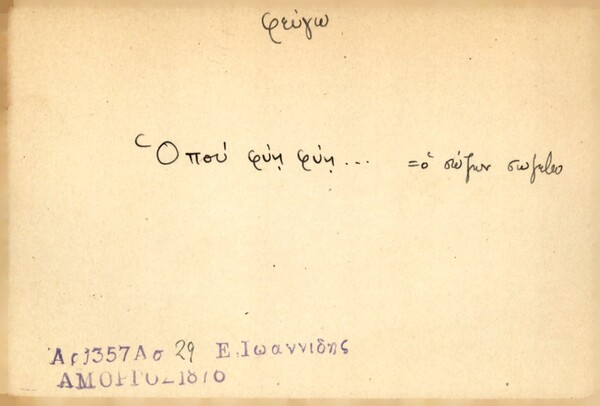 φεύγω
Ὁπού φύῃ φύῃ... = ὁ σώζων σωζέσθω
Αρ1357Ασ 29 Ε.Ιωαννιδης
ΑΜΟΡΓΟΣ1876